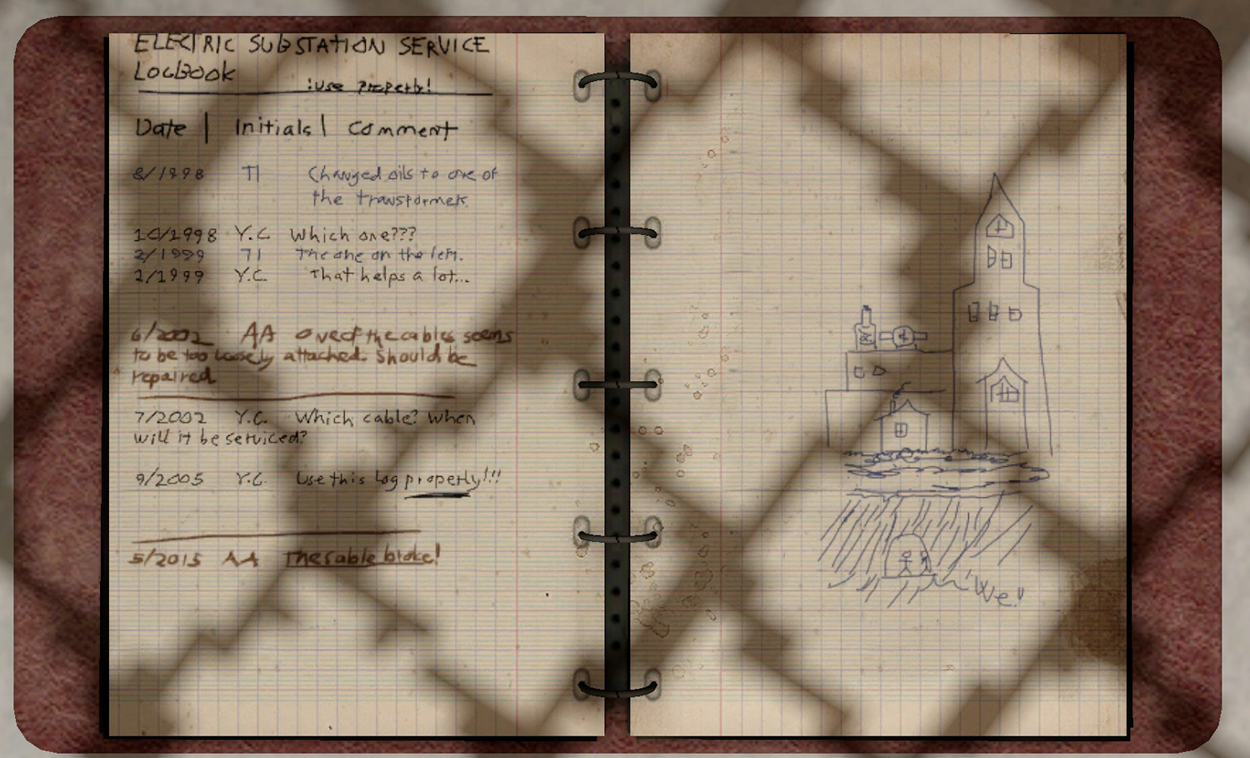 ELECTRIC SUBSTATION SERVICE
LOGBOOK
!Use properly!
Date | Initials | Comment
8/1998 TI Changed oils to one of
the transformers.
10/1998 Y.C Which one???
2/1999 TI The one on the left.
2/1999 Y.C. That helps a lot...
6/2002 AA One of the cables seems
to be too loosely attached. Should be
repaired
7/2002 Y.C. Which cable? When
will it be serviced?
9/2005 Y.C. Use this log properly!!!
5/2015 AA The cable broke!
"We"